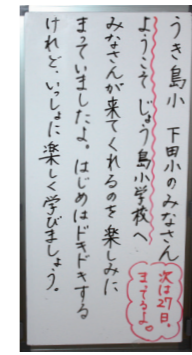 うき島小 下田小のみなさん
ようこそ じょう島小学校へ
みなさんが来てくれるのを楽しみに
まっていましたよ。はじめはドキドキする
けれど、いっしょに楽しく学びましょう。
次は27日。
まってるよ。